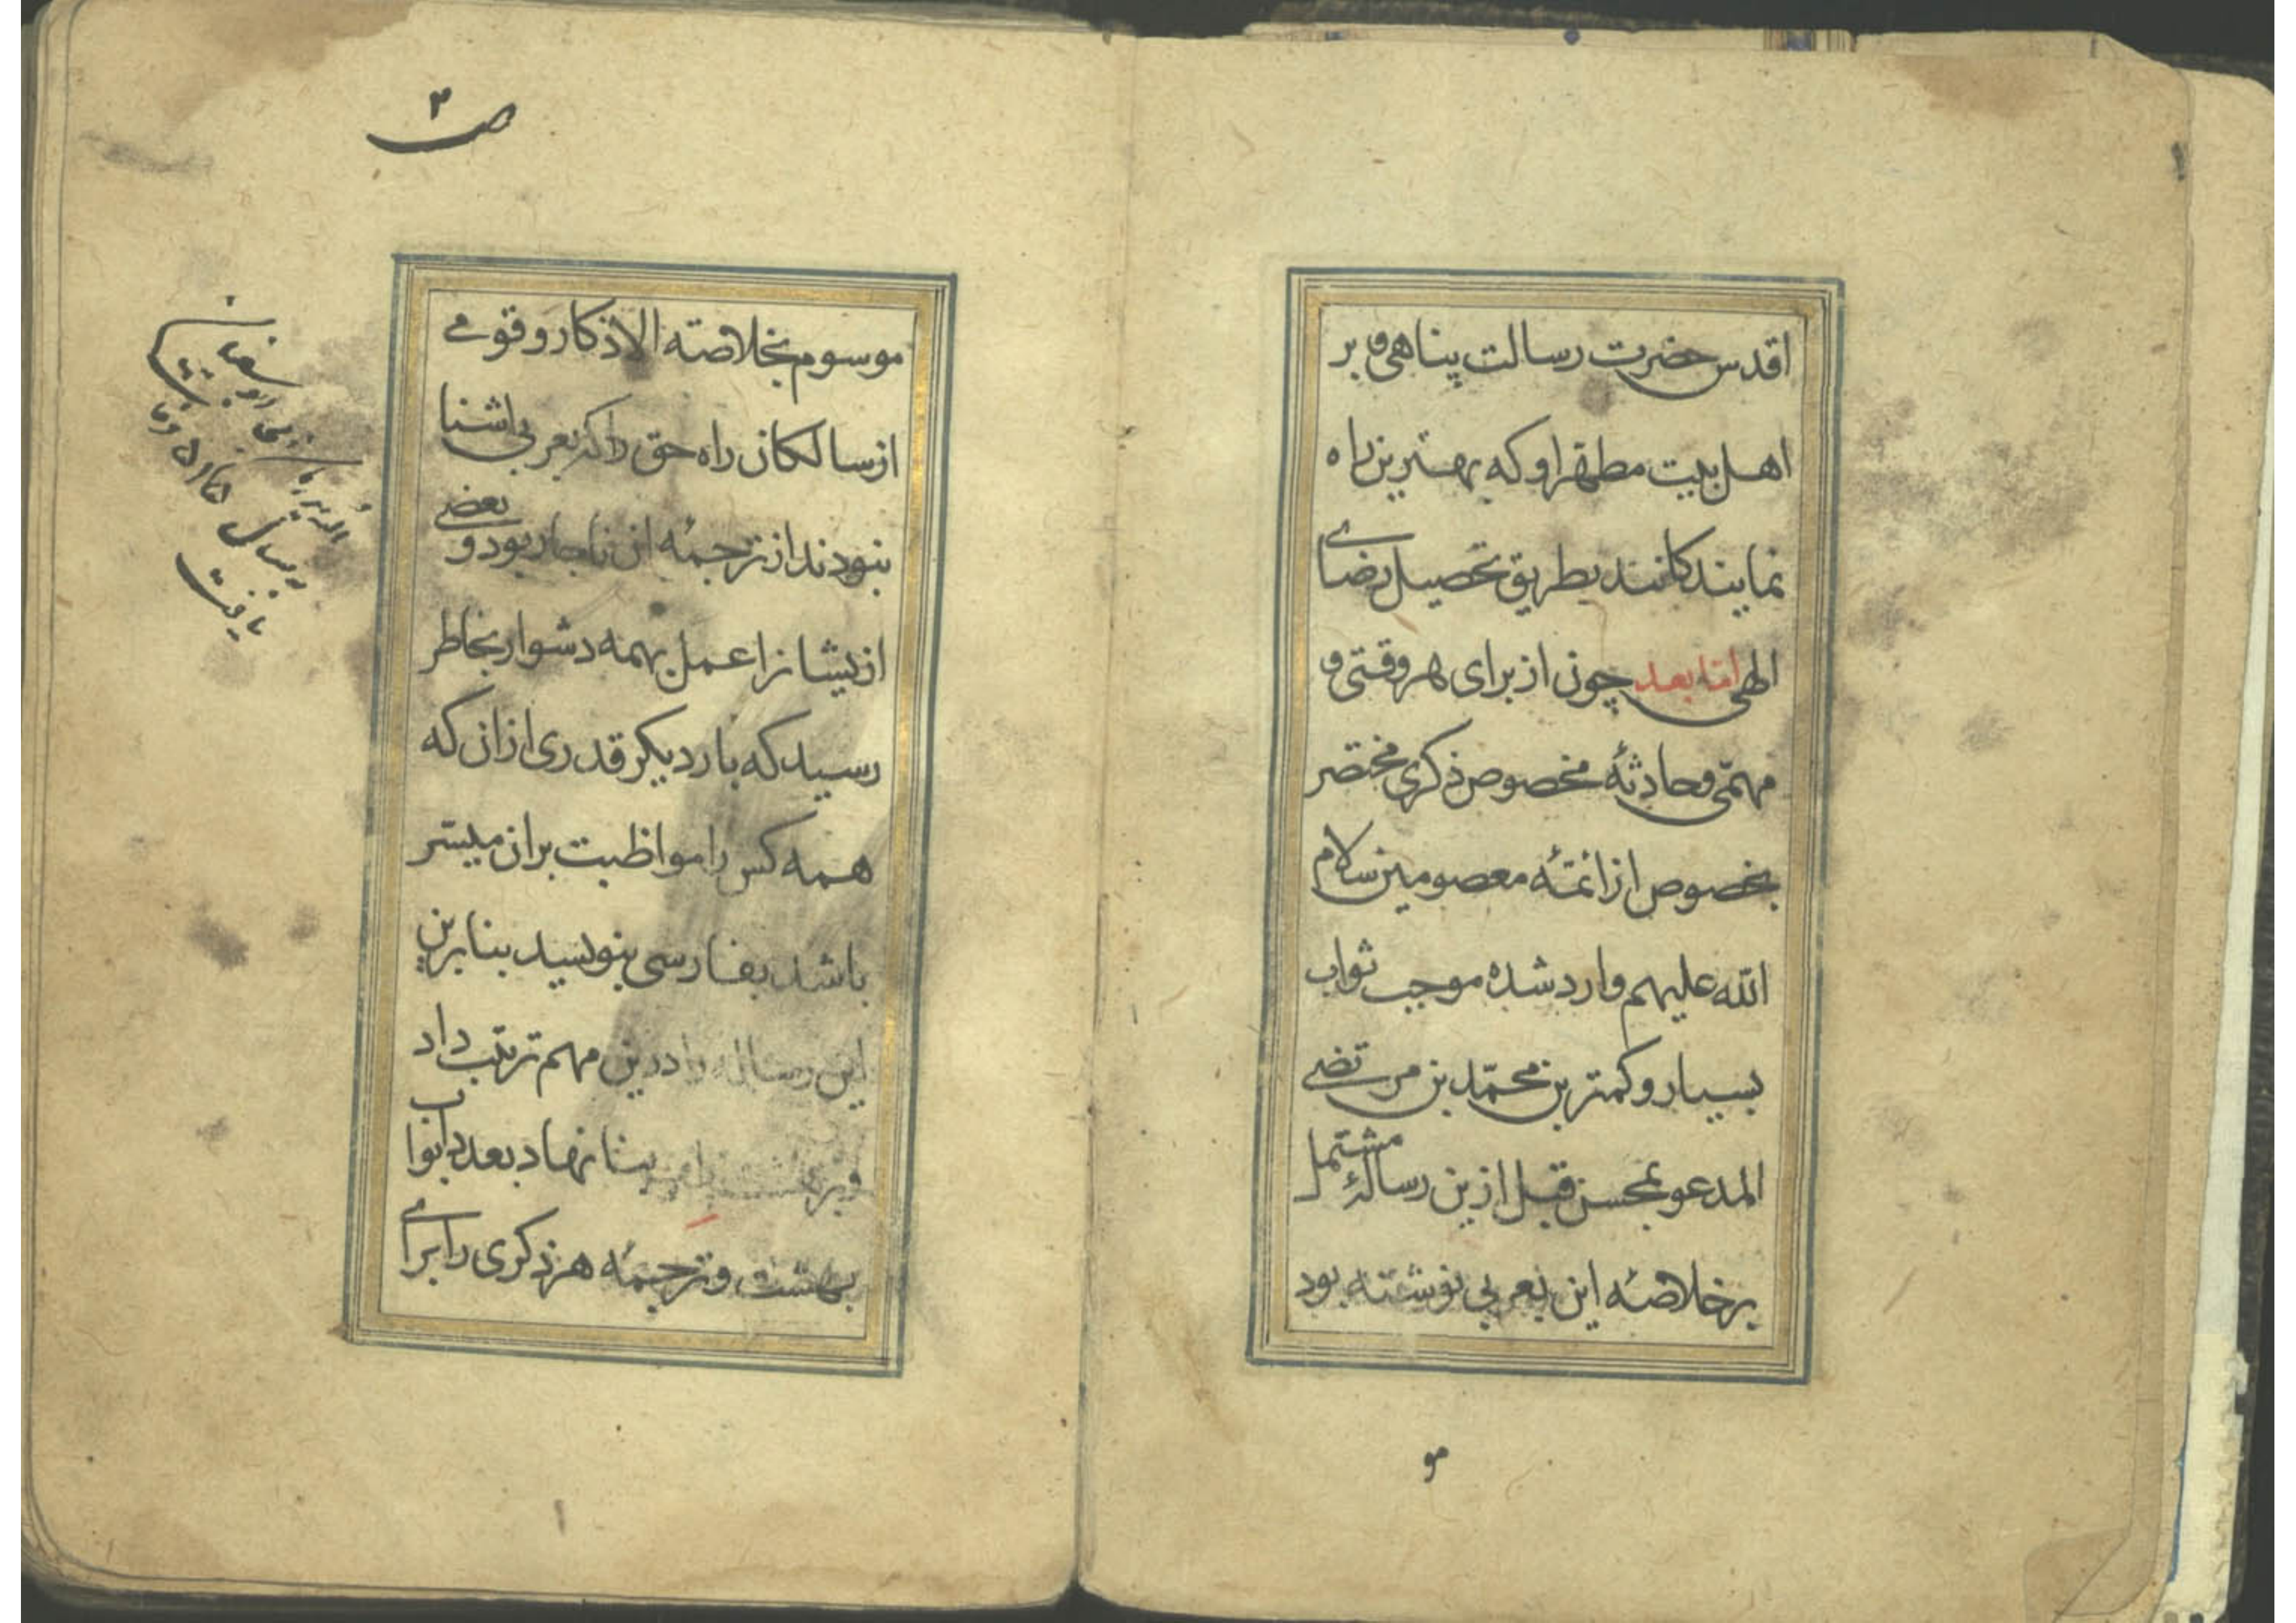 اقدس حضرت رسالت پناهی و بر
اهل بیت مطهر او که بهترین راه
نمایندکانند بطریق تحصیل رضای
الهی امّا بعد چون از برای هر وقتی و
مهمّی و حادثهٔ مخصوص ذکری مختصر
بخصوص از ائمّهٔ معصومین سلام
الله علیهم وارد شده موجب ثواب
بسیار و کمترین محمّد بن مرتضی
المدعو بمحسن قبل ازین رسالهٔ مشتمل
بر خلاصهٔ این بعربی نوشته بود
مو
ص ۲
موسوم بخلاصة الاذکار و قومی
از سالکان راه حق را که بعربی اشنا
نبودند از ترجمهٔ ان ناچار بود و بعضی
ازیشانرا عمل بهمه دشوار بخاطر
رسید که بار دیکر قدری ازان که
همه کس را مواظبت بران میسّر
باشد بفارسی بنویسید بنابرین
این رساله را درین مهم ترتیب داد
بنا نهاد بعدد ابواب
بهشت و ترجمهٔ هر ذکری را برای
یافت